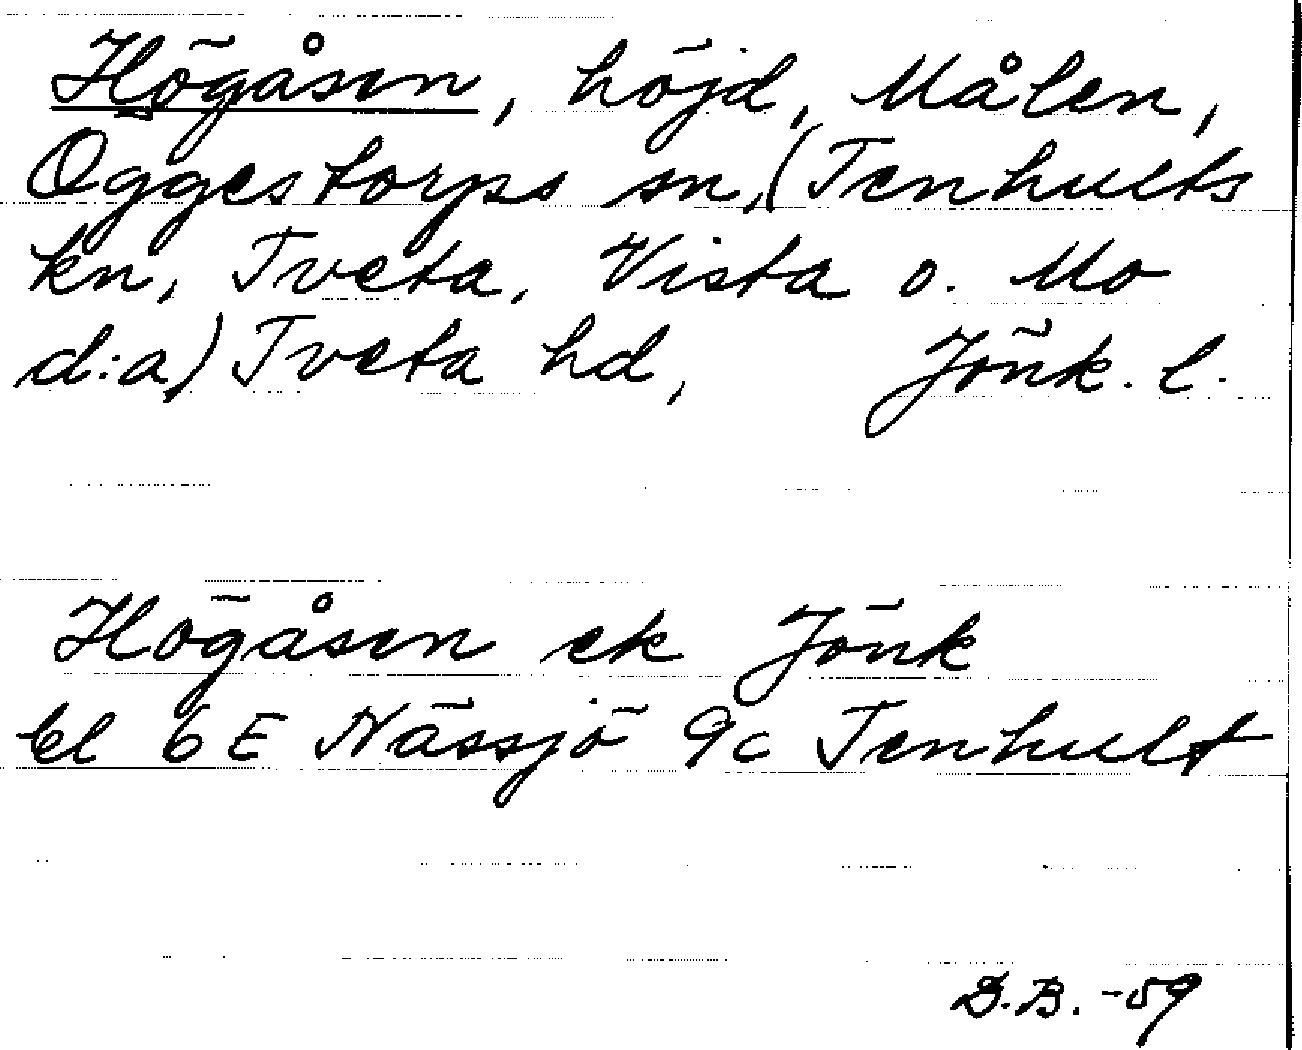 Högåsen, höjd, Målen,
Öggestorps sn, (Tenhults
kn, Tveta, Vista o. Mo
d:a) Tveta hd, Jönk. l.
Högåsen ek Jönk
bl 6E Nässjö 9c Tenhult
B.B. -59